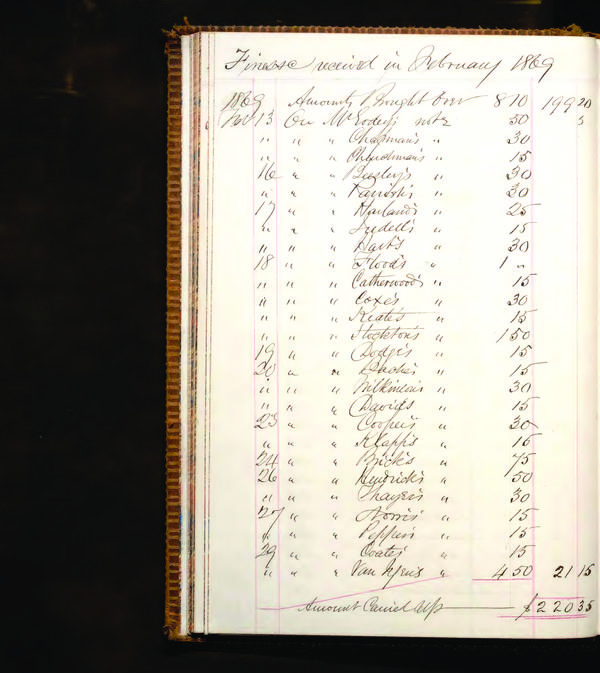 Fines &c received in February 1869
1869 Amounts Brought Over 8 10 199 20
13 On McEvoley's note 50 5
" " " Chapman's " 30
" " " Churchman's " 15
16 " " Beesley's " 30
" " " Parrish's " 30
17 " " Harland's " 25
" " " Iredell's " 15
" " " Hart's " 30
18 " " Flood's " 1 "
" " " Catherwood's " 15
" " " Coxe's " 30
" " " Keate's " 15
" " " Stockton's " 1 50
19 " " Dodge's " 15
20 " " " 15
" " " Wilkinson's " 30
" " " David's " 15
23 " " Cooper's " 30
" " " Klapp's " 15
24 " " Brick's " 75
26 " " Hendrick's " 50
" " " Thayer's " 30
27 " " Norris' " 15
" " " Pepper's " 15
29 " " Coates' " 15
" " " Van " 4 50 21 15
Amount Carried Up $ 220 35